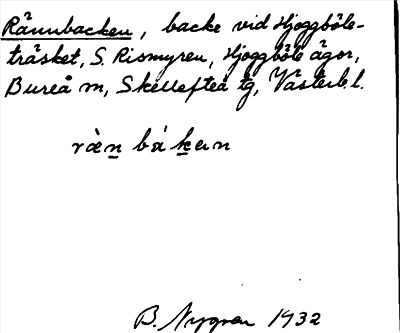 Rännbacken, backe vid Hjoggböle-
träsket, S. Rismyren, Hjoggböle ägor,
Bureå m, Skellefteå tg, Västerb. l.
ràn̲ bá k̲en
B. Nygren 1932